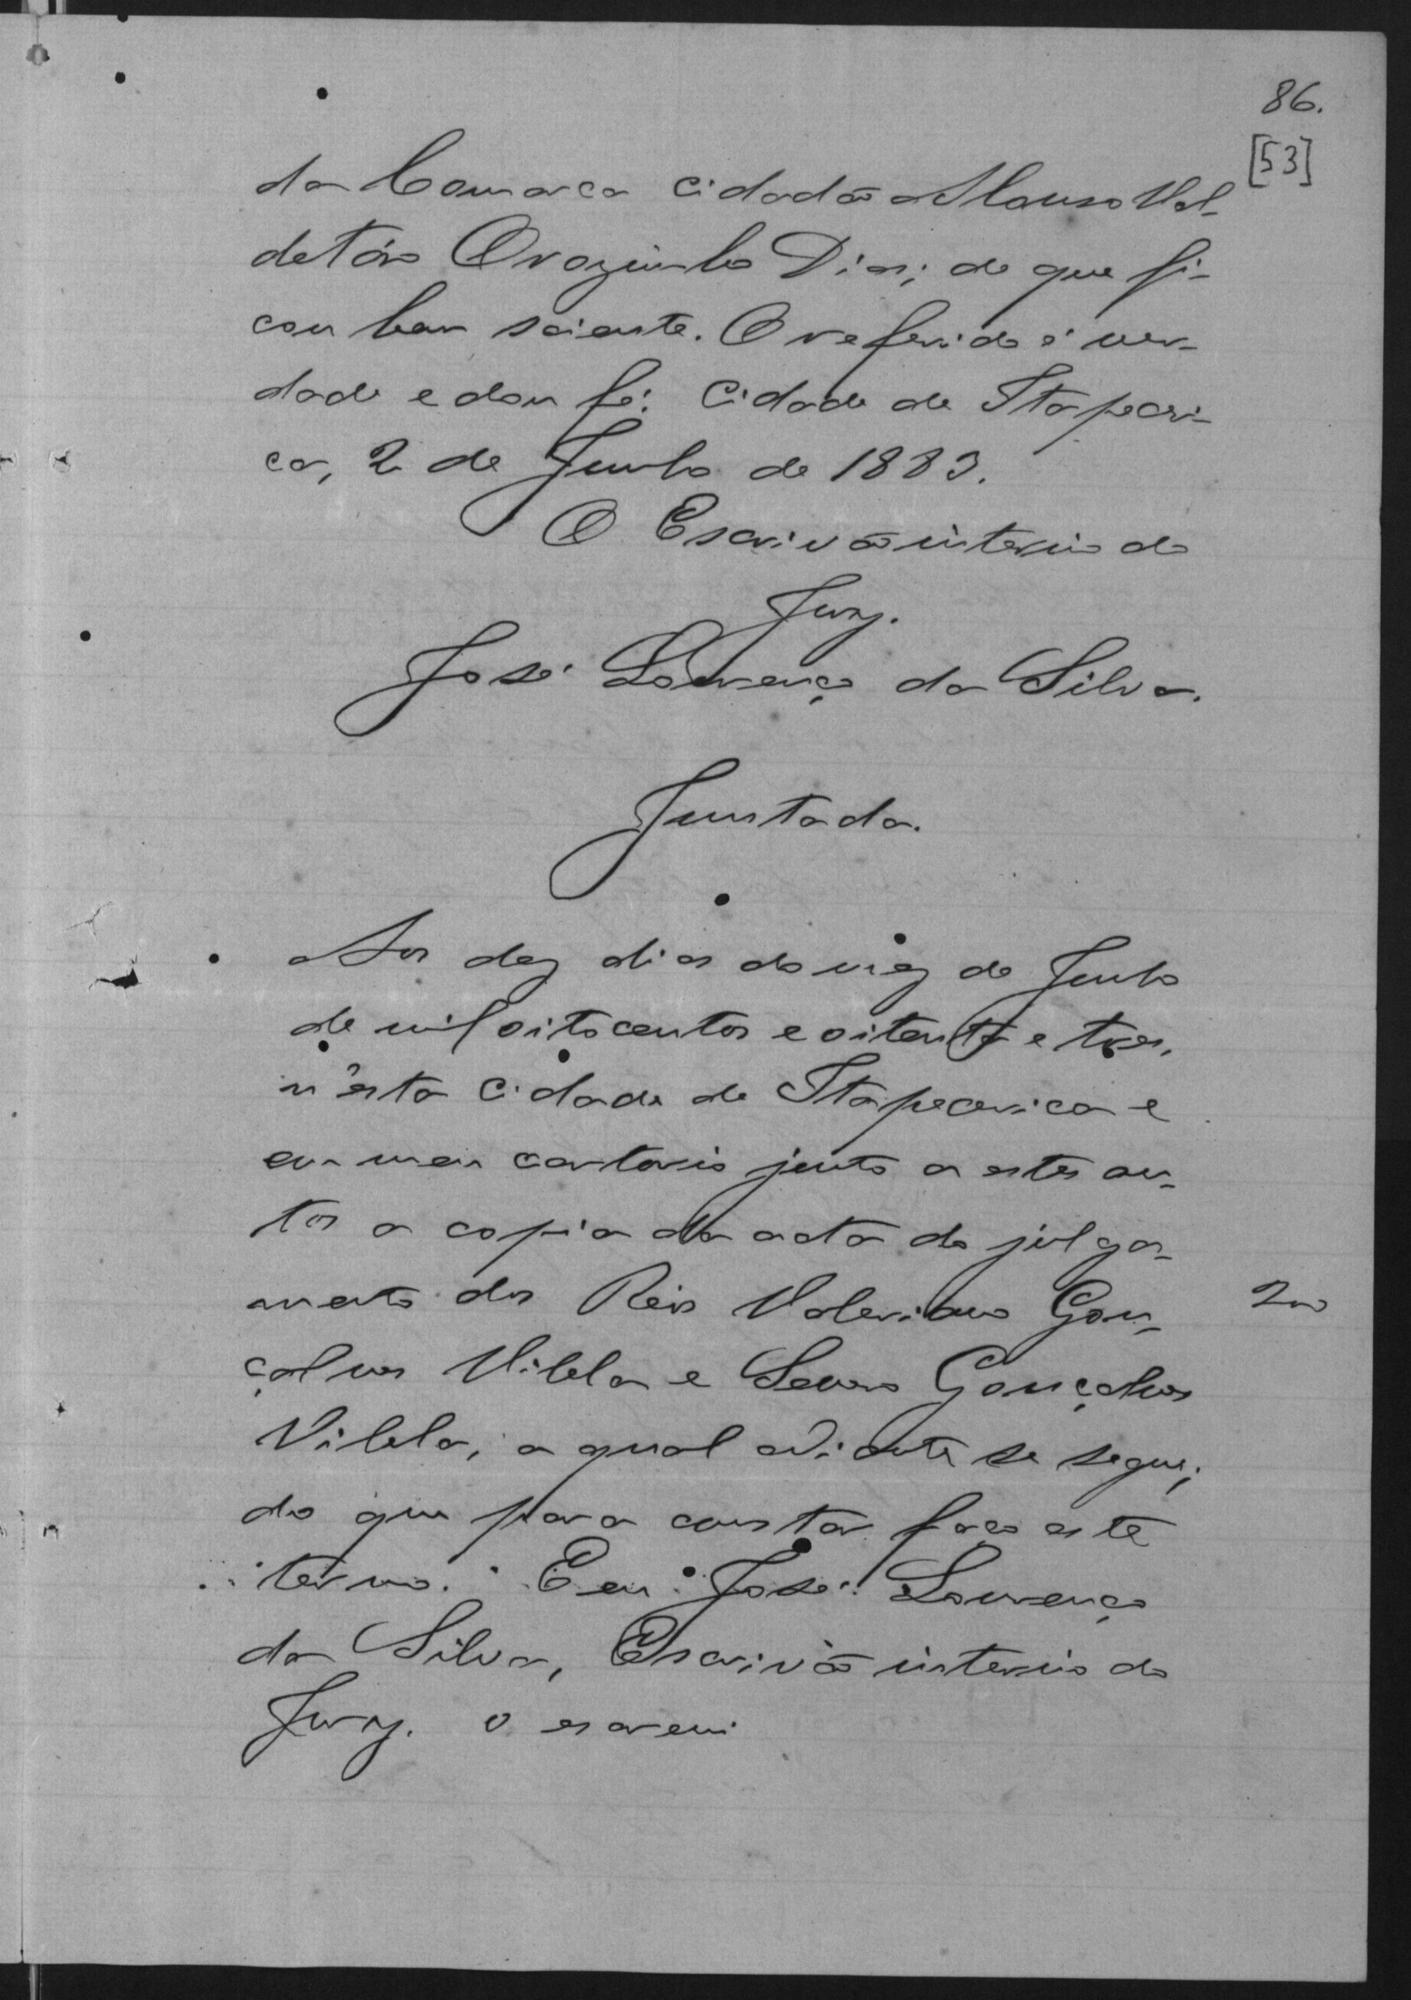 86.
[53]
da Comarca cidadão Afonso Val-
detáro Orozimbo Dias; do que fi-
cou bem sciente. O referido é ver-
dade e dou fé. Cidade de Itapeceri-
ca, 2 de Junho de 1883.
O Escrivão interino do
Jury.
José Lourenço da Silva.
Juntada.
Aos dez dias do mez de Junho
de mil oitocentos e oitenta e tres,
n'esta cidade de Itapecerica e
em meu cartorio junto a estes au-
tos a copia da acta do julga-
mento dos Reis Valeriano Gon-
200
çalves Vilela e Severo Gonçalves
Vilela, a qual adiante se segue;
do que para constar faço este
termo. E eu José Lourenço
da Silva, Escrivão interino do
Jury. o escrevi